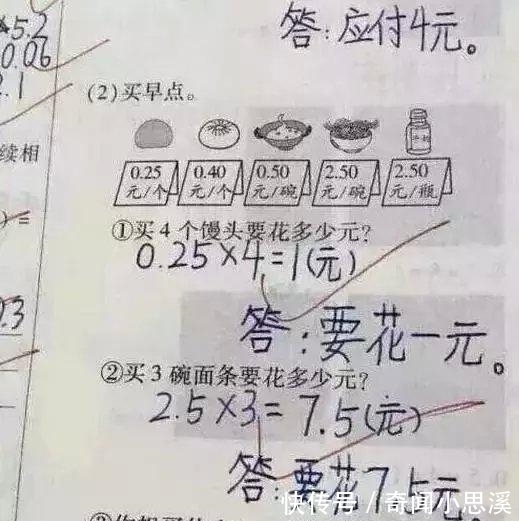 ×5.2
0.06
2.1
答:应付4元。
(2)买早点。
续相
0.25 0.40 0.50 2.50 2.50
元/个 元/个 元/碗 元/碗 元/瓶
①买4个馒头要花多少元?
0.25×4=1(元)
答:要花一元。
0.3
②买3碗面条要花多少元?
2.5×3=7.5(元)
答:要花7.5元
快传号/奇闻小思溪